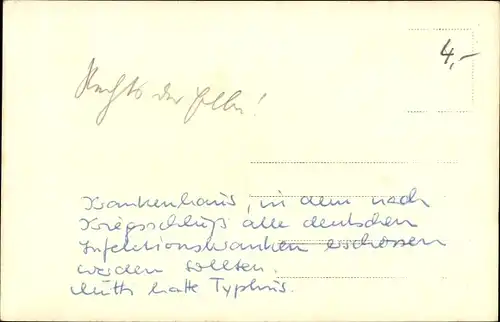 4,-
Rechts der Elbe!
Krankenhaus, in dem nach
Kriegsschluß alle deutschen
Infektionskranken erschossen
werden sollten.
Mutti hatte Typhus.